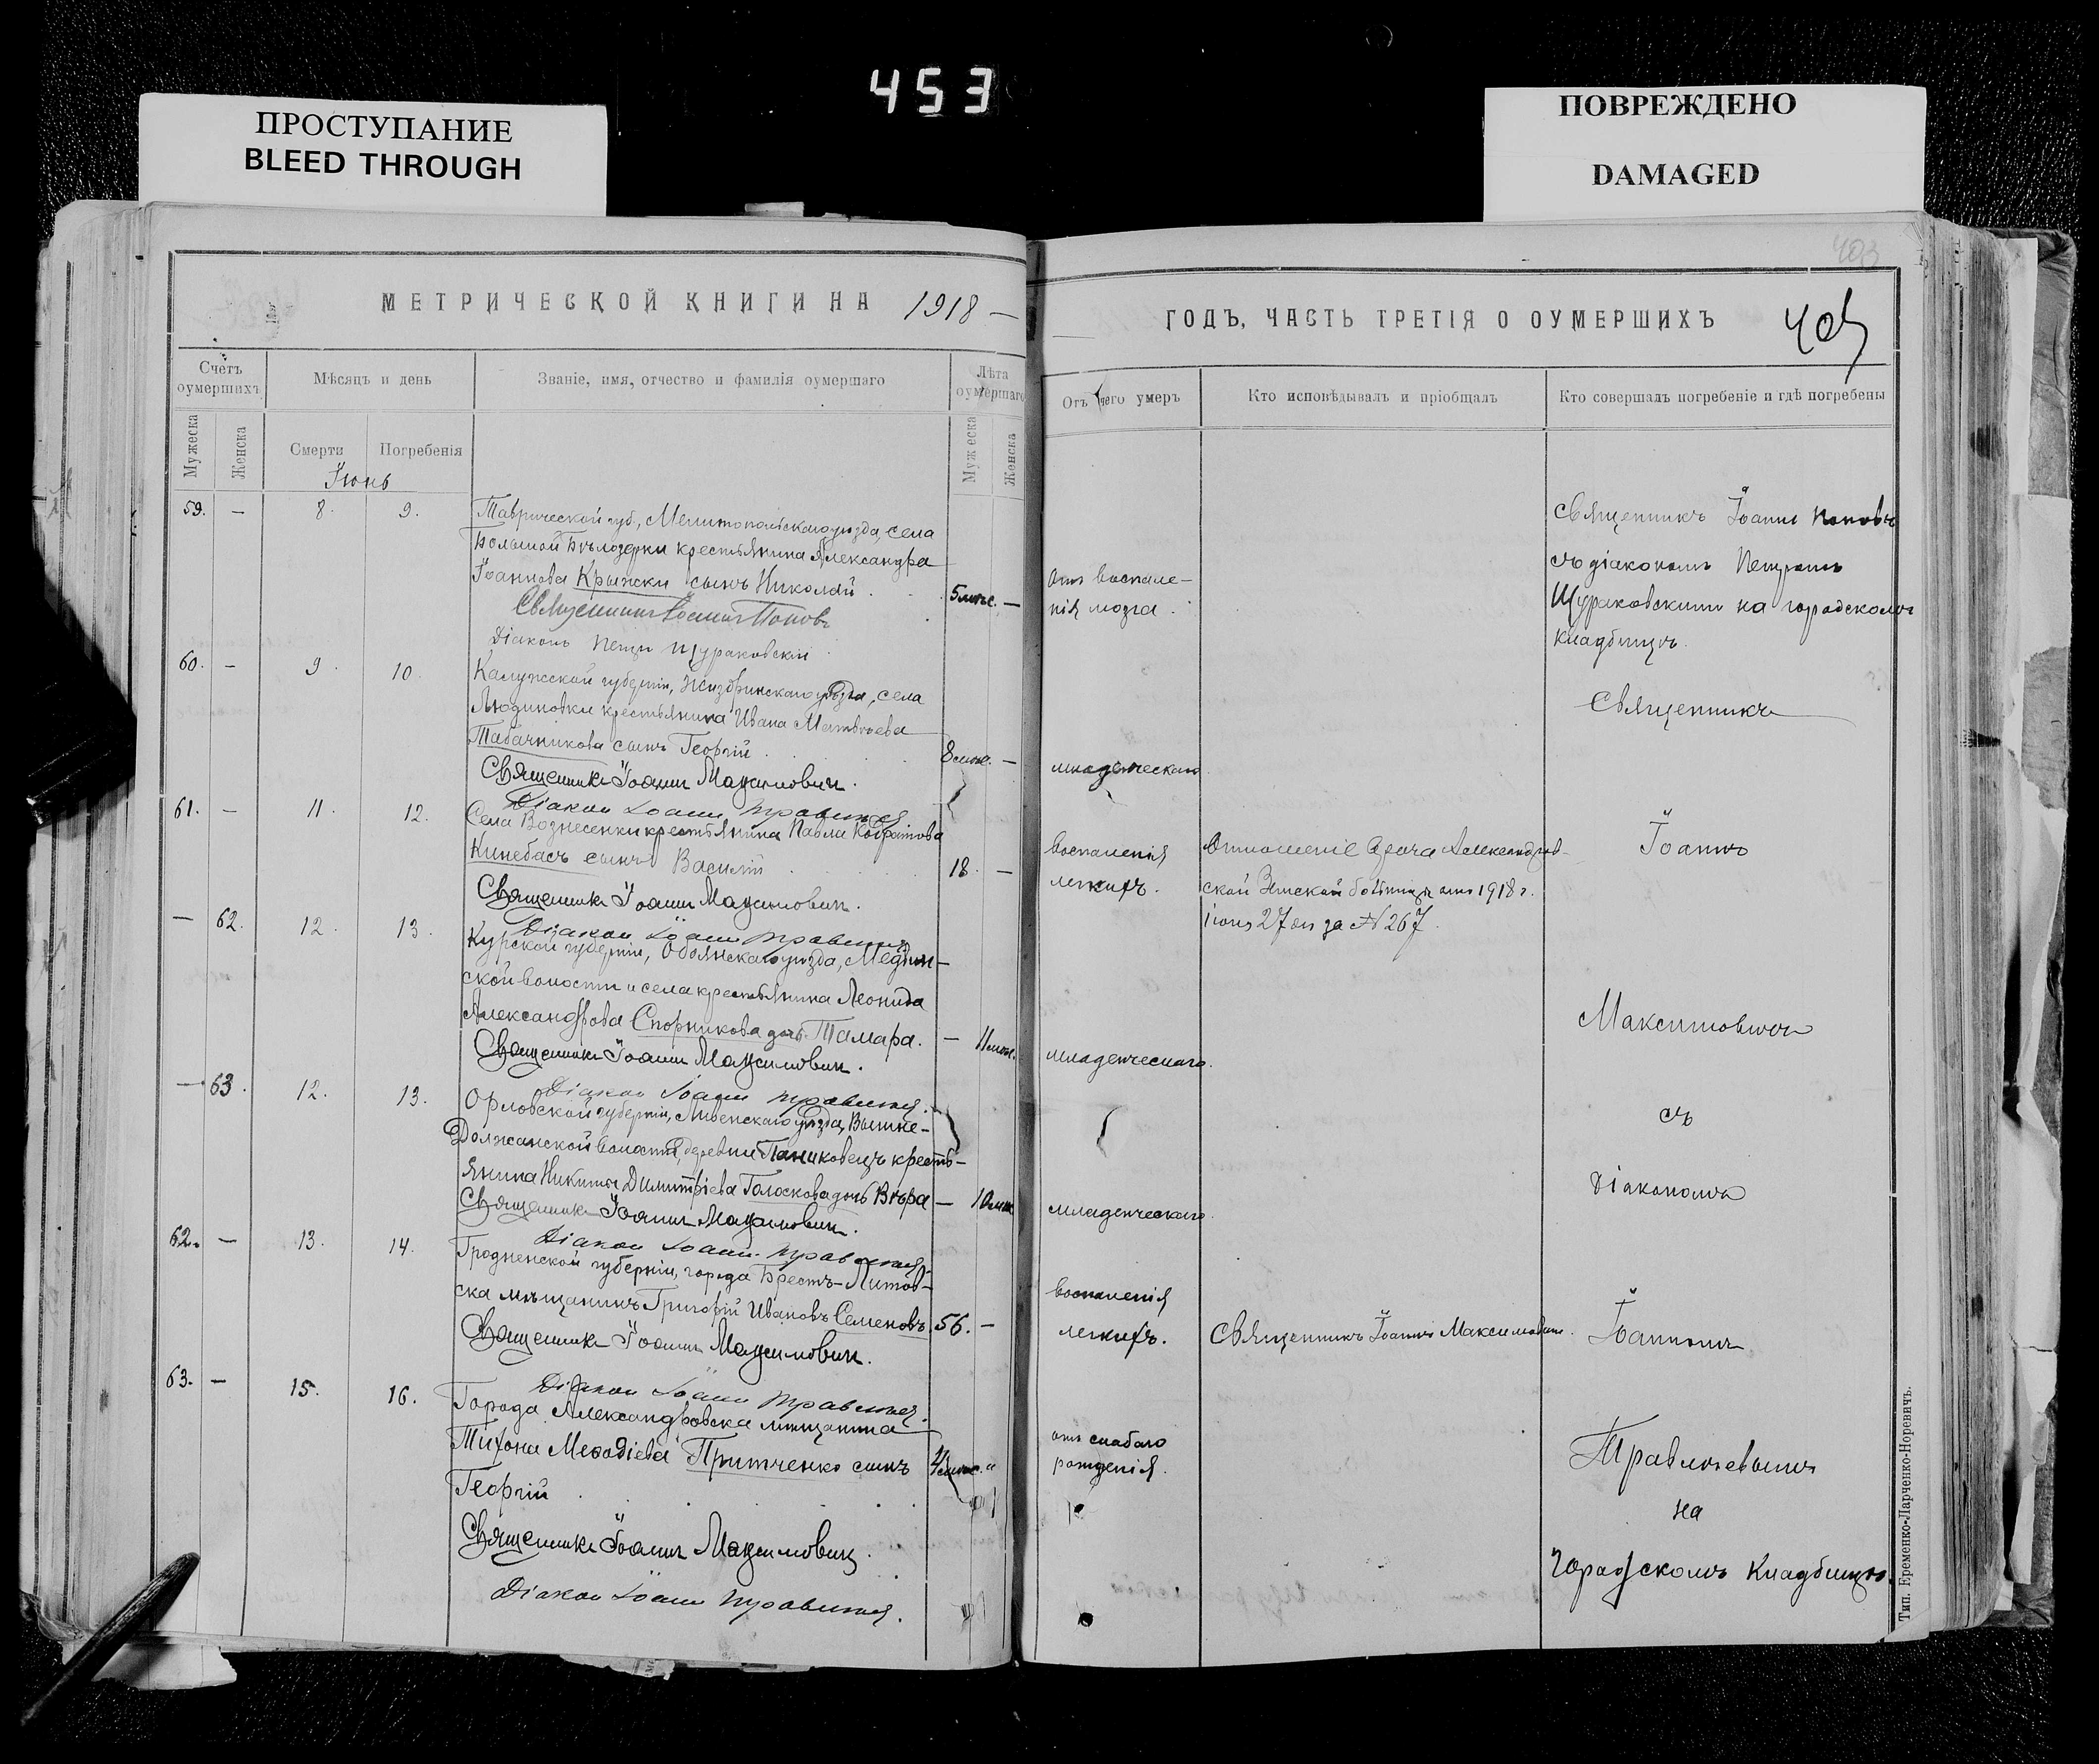 453
ПРОСТУПАНИЕ
BLEED THROUGH
ПОВРЕЖДЕНО
DAMAGED
МЕТРИЧЕСКОЙ КНИГИ НА 1918 —
Счетъ оумершихъ
Мѣсяцъ и день
Званіе, имя, отчество и фамилія оумершаго
Лѣта оумершаго
Мужеска
Женска
Смерти
Погребенія
Мужеска
Женска
Іюнь
59. — 8. 9. Таврической губ., Мелитопольскаго уѣзда, села
Большой Бѣлозерки крестьянина Александра
Іоаннова Крыжски сынъ Николай . 5 мѣс. —
Священникъ Іоаннъ Поповъ
Діаконъ Петръ Щураковскій
60. — 9. 10. Калужской губерніи, Жиздринскаго уѣзда, села
Людиновки крестьянина Ивана Матвѣева
Табачникова сынъ Георгій . 8 мѣс. —
Священникъ Іоаннъ Максимовичъ.
Діаконъ Іоаннъ
61. — 11. 12. Села Вознесенки крестьянина Павла
Кинебасъ сынъ Василій 18. —
Священникъ Іоаннъ Максимовичъ.
Діаконъ Іоаннъ
— 62. 12. 13. Курской губерніи, Обоянскаго уѣзда,
ской волости и села крестьянина Леонида
Александрова Спорникова дочь Тамара. — 11 мѣс.
Священникъ Іоаннъ Максимовичъ.
Діаконъ Іоаннъ
— 63. 12. 13. Орловской губерніи, Ливенскаго уѣзда, Вышне-
Должанской волости, деревни Паниковецъ кресть-
янина Никиты Димитріева Голоскова дочь Вѣра — 10 мѣс.
Священникъ Іоаннъ Максимовичъ.
Діаконъ Іоаннъ
62. — 13. 14. Гродненской губерніи, города Брестъ-Литов-
ска мѣщанинъ Григорій Ивановъ Семеновъ 56. —
Священникъ Іоаннъ Максимовичъ.
Діаконъ Іоаннъ
63. — 15. 16. Города Александровска мѣщанина
Тихона Меѳодіева Притченко сынъ
Георгій
Священникъ Іоаннъ Максимовичъ.
Діаконъ Іоаннъ
403
ГОДЪ, ЧАСТЬ ТРЕТІЯ О ОУМЕРШИХЪ
Отъ чего умеръ
Кто исповѣдывалъ и пріобщалъ
Кто совершалъ погребеніе и гдѣ погребены
отъ воспале-
нія мозга.
младенческаго
воспаленія
легкихъ.
младенческаго.
младенческаго.
воспаленія
легкихъ.
отъ слабаго
рожденія.
Отношеніе врача Александров-
ской Земской больницы отъ 1918 г.
іюня 27 дн за № 267.
Священникъ Іоаннъ Максимовичъ.
Священникъ Іоаннъ Поповъ
съ діакономъ Петромъ
Щураковскимъ на городскомъ
кладбищѣ.
Священникъ
Іоаннъ
Максимовичъ
съ
Діакономъ
Іоанномъ
на
городскомъ кладбищѣ.
Тип. Еременко-Ларченко-Норевичъ.